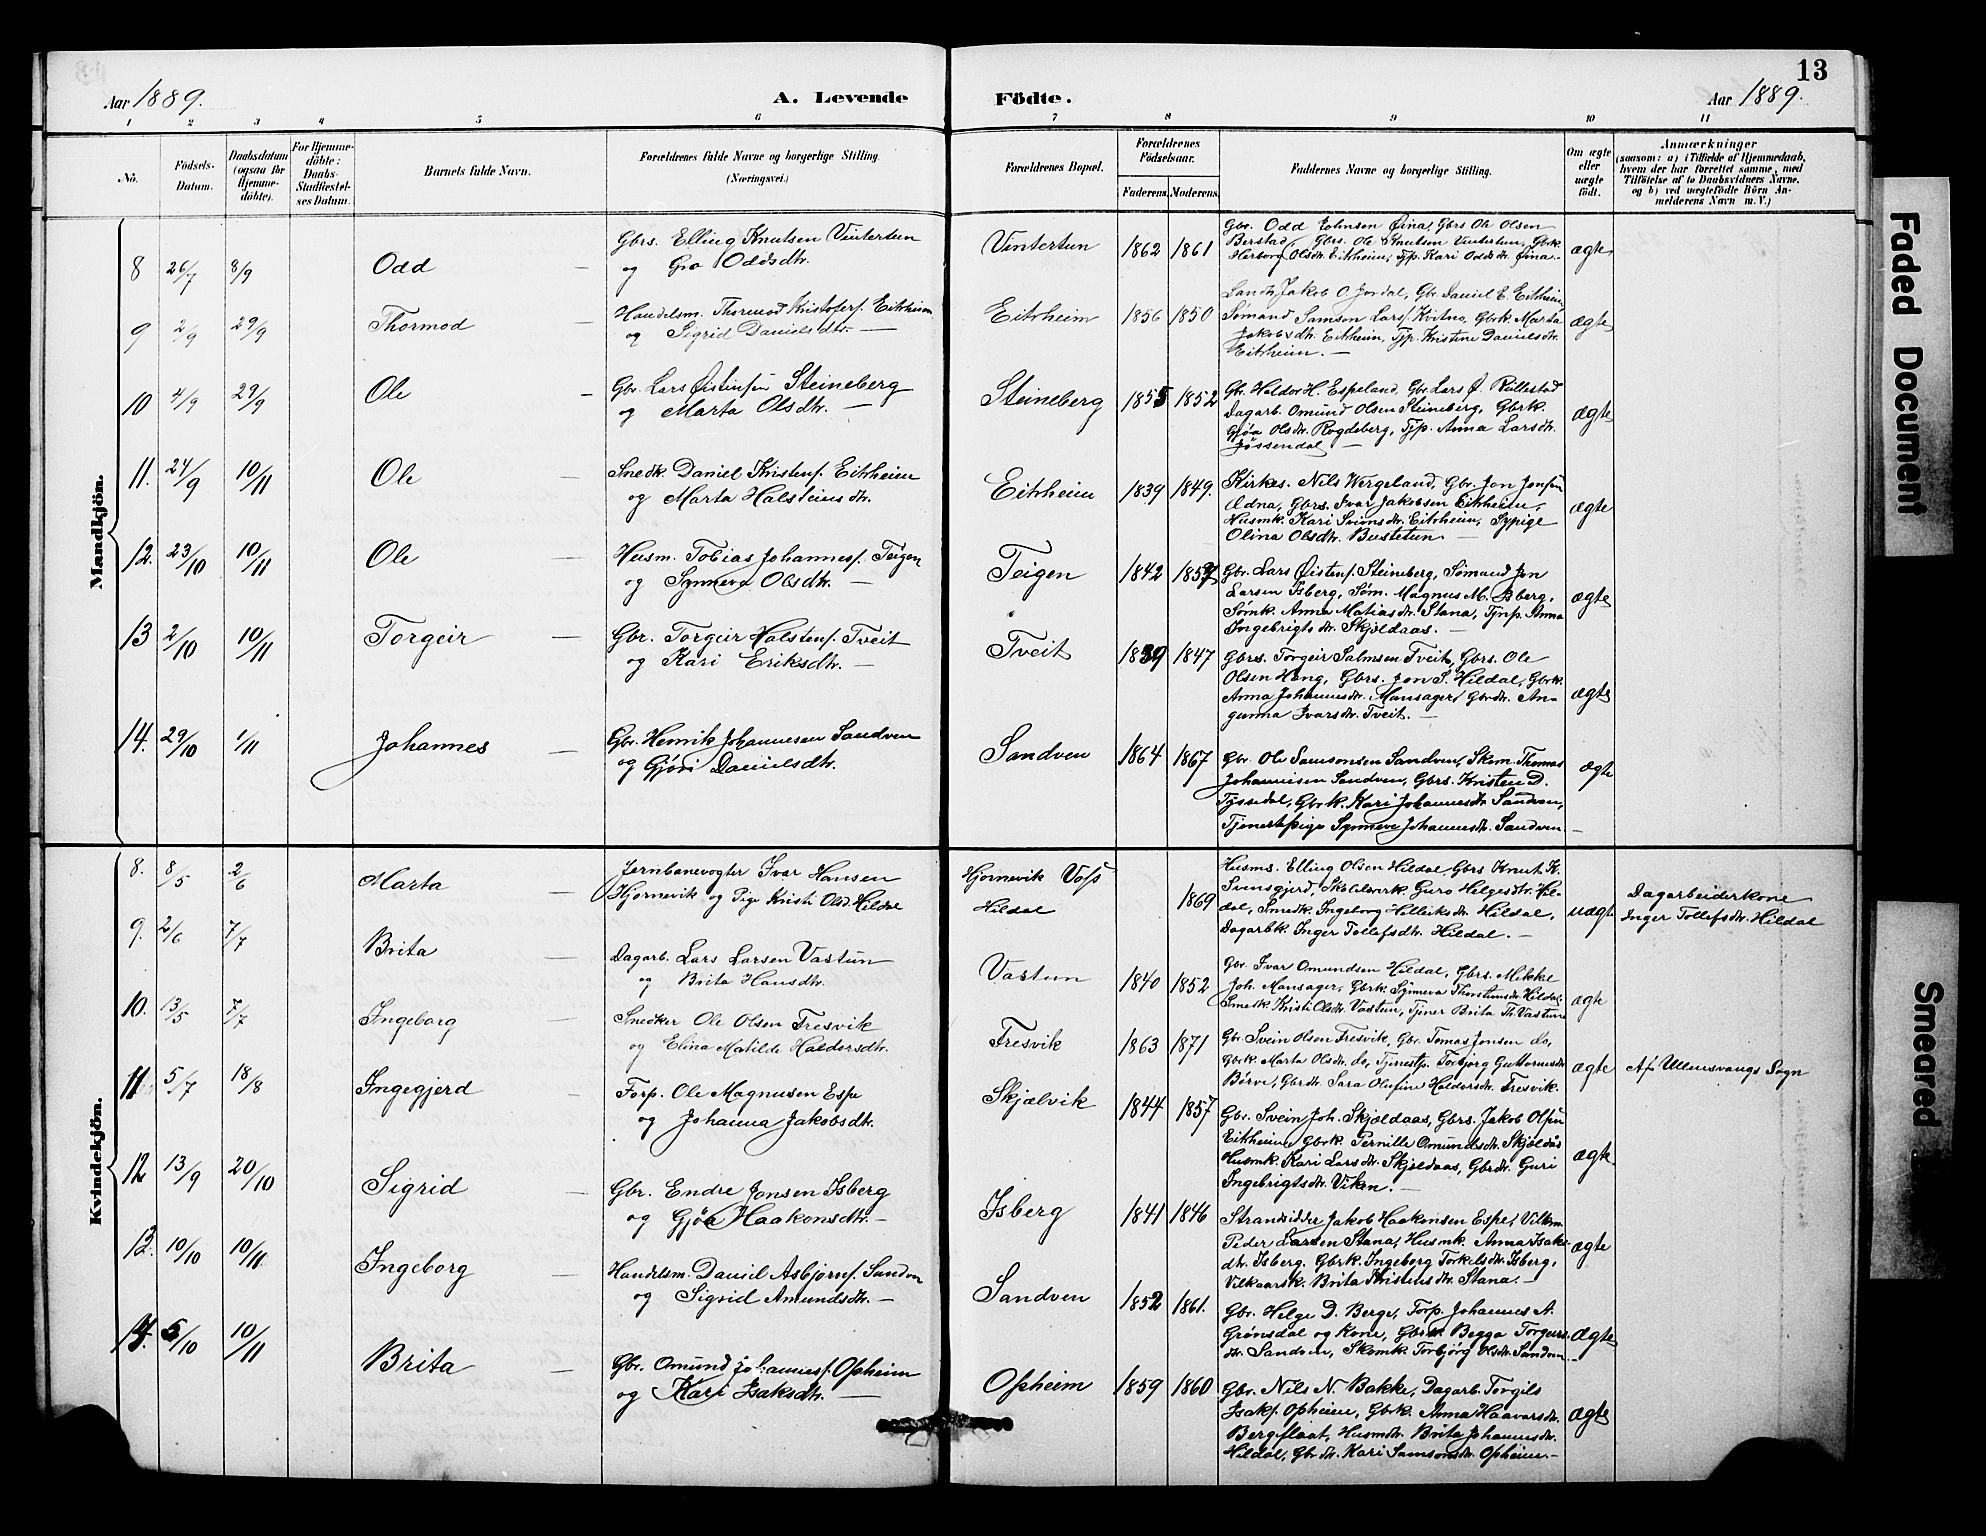 13
Aar 1889. A. Levende Födte. Aar 1889.
1 2 3 4 5 6 7 8 9 10 11
No.
Födsels-
Datum.
Daabsdatum
(ogsaa for
Hjemme-
döbte).
For Hjemme-
döbte:
Daabs-
Stadfæstel-
ses Datum.
Barnets fulde Navn.
Forældrenes fulde Navne og borgerlige Stilling.
(Næringsvei.)
Forældrenes Bopæl.
Forældrenes
Födselsaar.
Faderens. Moderens.
Faddernes Navne og borgerlige Stilling.
Om ægte
eller
uægte
födt.
Anmærkninger
(saasom: a) i Tilfælde af Hjemmedaab,
hvem der har forrettet samme, med
Tilföielse af to Daabsvidners Navne,
og b) ved uægtefödte Börn An-
melderens Navn m. V.)
Mandkjön.
8 26/7 8/9 Odd —
Gbrs. Elling Knutsen Vintertun
og Gro Oddsdtr.
Vintertun 1862 1861
Gbr. Odd Johnsen Øina, Gbrs Ole Olsen
Berstad, Gbrs. Ole Knutsen Vintertun, Gbrk.
Herborg Olsdtr. Eitrheim, Tjp. Kari Oddsdtr. Øina.
ægte
9 2/9 29/9 Thormod —
Handelsm. Thormod Kristofers. Eitrheim
og Sigrid Danielsdtr. —
Eitrheim 1856 1850
Jakob O. Jordal, Gbr. Daniel E. Eitrheim
Sømand Samson Larss. Kvitno, Gbrk. Marta
Jakobsdtr. Eitrheim, Tjp. Kristine Danielsdtr.
Eitrheim. —
ægte
10 4/9 29/9 Ole —
Gbr. Lars Øistensen Steineberg
og Marta Olsdtr. —
Steineberg 1855 1852
Gbr. Haldor H. Espeland, Gbr. Lars Ø. Rullestad
Dagarb. Omund Olsen Steineberg, Gbrk.
Gjøa Olsdtr. Rogdeberg, Tjp. Anna Larsdtr.
Jøssendal —
ægte
11. 24/9 10/11 Ole —
Snedk. Daniel Kristens. Eitrheim
og Marta Halsteinsdtr.
Eitrheim 1839 1849.
Kirkes. Nils Wergeland, Gbr. Jon Jonsen
Ædna, Gbrs. Ivar Jakobsen Eitrheim,
Husmk. Kari Sveinsdtr. Eitrheim, Sypige
Olina Olsdtr. Bustetun —
ægte
12. 23/10 10/11 Ole —
Husm. Tobias Johannes. Teigen
og Synneva Olsdtr. —
Teigen 1842 1857
Gbr. Lars Øistens. Steineberg, Sømand Jon
Larsen Isberg, Søm. Magnus M. Isberg,
Sømk. Anna Matiasdtr. Stana, Tjnp. Anna
Ingebrigtsdtr. Skjeldaas. —
ægte
13 2/10 10/11 Torgeir —
Gbr. Torgeir Halstens. Tveit
og Kari Eriksdtr. —
Tveit 1839 1847
Gbrs. Torgeir Salmsen Tveit, Gbrs. Ole
Olsen Haug, Gbrs. Jon S. Hildal, Gbrk.
Anna Johannesdtr. Mansager, Gbrdtr. An-
gunna Ivarsdtr. Tveit. —
ægte
14. 29/10 1/11 Johannes —
Gbr. Henrik Johannesen Sandven
og Gjøri Danielsdtr.
Sandven 1864 1867
Gbr. Ole Samsonsen Sandven, Skom. Thomas
Johannesen Sandven, Gbrs. Kristen D.
Tyssedal, Gbrk. Kari Johannesdtr. Sandven,
Tjenestepige Synneve Johannesdtr. Sandven —
ægte
Kvindekjön.
8. 8/5 2/6 Marta —
Jernbanevogter Ivar Hansen
Hjørnevik og Pige Kristi Olsd. Hildal
Hjørnevik Voss
Hildal 1869
Husms. Elling Olsen Hildal, Gbrs Knut K.
Guro Helgesdtr. Hil-
dal, Smedk. Ingeborg Helleiksdtr. Hildal,
Dagarbk. Inger Tollefsdtr. Hildal. —
uægte
Dagarbeiderkone
Inger Tollefsdtr. Hildal
9. 2/6 7/7 Brita
Dagarb. Lars Larsen Vastun
og Brita Hansdtr.
Vastun 1840 1852
Gbr. Ivar Omundsen Hildal, Gbrs. Mikkel
Joh. Mansager, Gbrk. Synneva Thorsteinsdtr. Hildal
Smedk. Kristi Olsdtr. Vastun, Tjener Brita Th. Vastun
ægte
10. 13/5 7/7 Ingeborg —
Snedker Ole Olsen Fresvik
og Elina Matilde Haldorsdtr.
Fresvik 1863 1871
Gbr. Svein Olsen Fresvik, Gbr. Tomas Jonsen do,
Gbrk. Marta Olsdtr. do, Tjenestp. Torbjørg Guttormsdtr
Børve, Gbrdtr. Sara Olufine Haldorsdtr. Fresvik.
ægte
Af Ullensvangs Sogn
11 5/7 18/8 Ingegjerd —
Forp. Ole Magnusen Espe
og Johanna Jakobsdtr.
Skjælvik 1844 1857
Gbr. Svein Joh. Skjældaas, Gbrs. Jakob Olsen
Eitrheim, Gbrk. Pernille Omundsdtr. Skjeldås
Husmk. Kari Larsdtr. Skjeldaas, Gbrdtr. Guri
Ingebrigtsdtr. Viken. —
ægte
12 13/9 20/10 Sigrid —
Gbr. Endre Jonsen Isberg
og Gjøa Haakonsdtr. —
Isberg 1841 1846
Strandsidder Jakob Haakonsen Espe, Vilkm.
Peder Larsen Stana, Husmk. Anna Isaks-
dtr. Isberg, Gbrk. Ingeborg Torkelsdtr. Isberg,
Vilkaarsk. Brita Kristensdtr. Stana. —
ægte
13. 10/10 10/11 Ingeborg —
Handelsm. Daniel Asbjørns. Sandven
og Sigrid Amundsdtr. —
Sandven 1852 1861.
Gbr. Helge D. Berge, Forp. Johannes A.
Grønsdal og Kone, Gbrk. Begga Torgeirs-
dtr. Sandven, Skomk. Torbjørg Olsdtr. Sandven —
ægte
14. 5/10 10/11 Brita —
Gbr. Omund Johanness. Opheim
og Kari Isaksdtr. —
Opheim 1859 1860
Gbr. Nils N. Bakke, Dagarb. Torgils
Isaks. Opheim, Gbrk. Anna Haavarsdtr.
Bergflaat, Husmdtr. Brita Johannesdtr.
Hildal, Gbrdtr. Kari Samsonsdtr. Opheim. —
ægte
Faded Document
Smeared